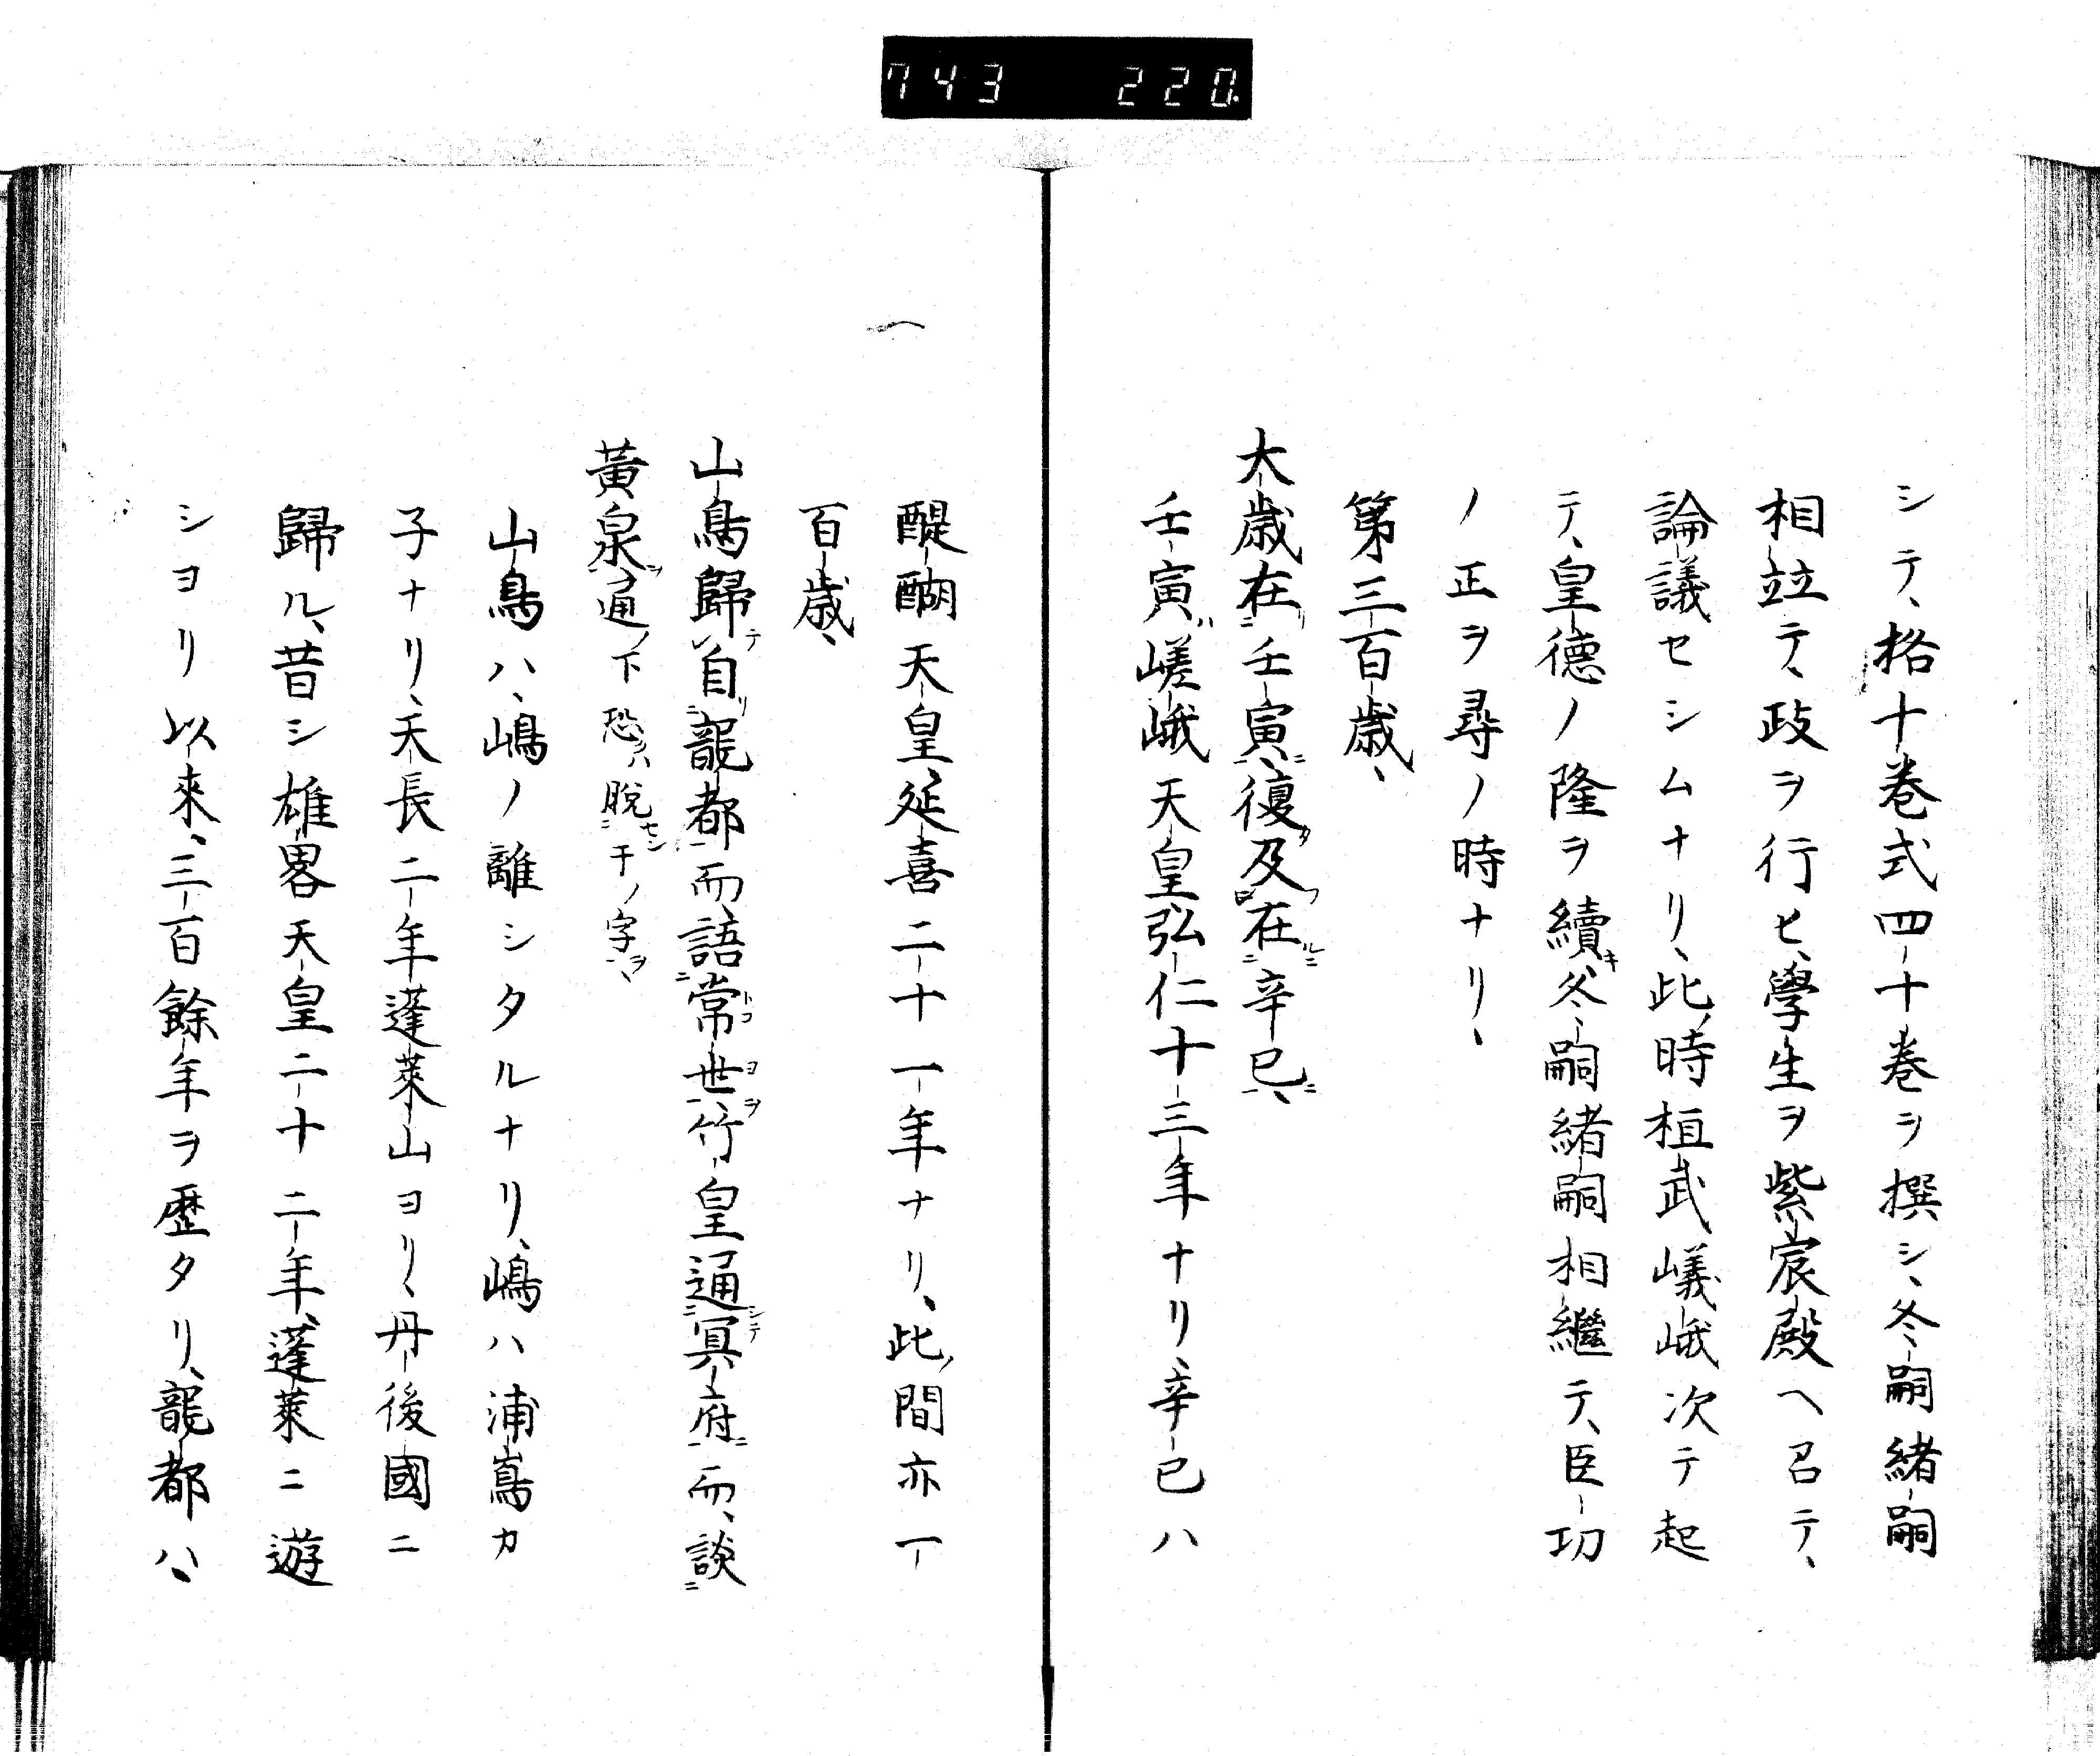 743 220.
シテ、格十巻式四十巻ヲ撰シ、冬嗣緒嗣
相竝テ、政ヲ行ヒ、學生ヲ紫宸殿ヘ召テ、
論議セシムナリ、此時桓武嵯峨次テ起
テ、皇德ノ隆ヲ續キ、冬嗣緒嗣相繼テ、臣功
ノ正ヲ尋ノ時ナリ、
第三百歳、
大歳在リ二壬寅ニ一、復タ及フレ在ルニ二辛巳ニ一、
壬寅ハ嵯峨天皇弘仁十三年ナリ、辛巳ハ
醍醐天皇延喜二十一年ナリ、此ノ間亦一
百歳、
山鳥歸テ自リ二龍都一而、語二常世ヲ一、竹皇通シテ二冥府ニ一而、談二
黃泉ヲ一、通ノ下恐クハ脫セシ二于ノ字ヲ一、
山鳥ハ、嶋ノ離シタルナリ、嶋ハ浦嶌カ
子ナリ、天長二年蓬萊山ヨリ、丹後國ニ
歸ル、昔シ雄畧天皇二十二年、蓬萊ニ遊
シヨリ以來、三百餘年ヲ歴タリ、龍都ハ、